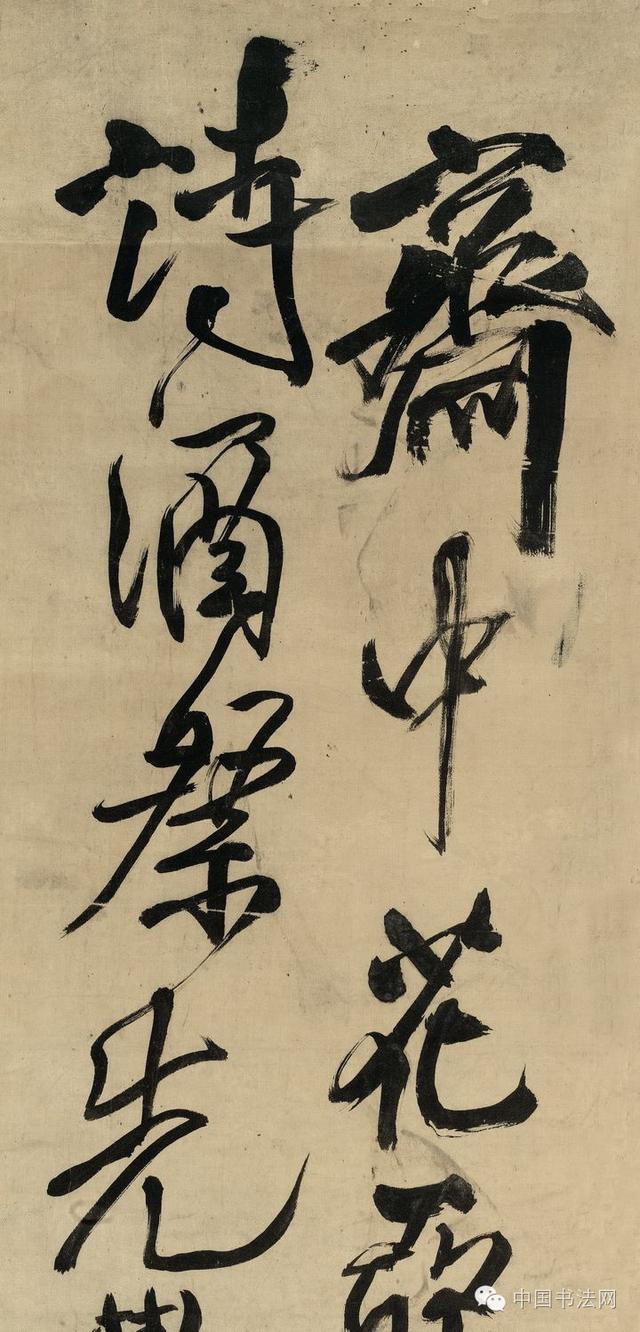 齋中花
詩酒祭先
中国书法网